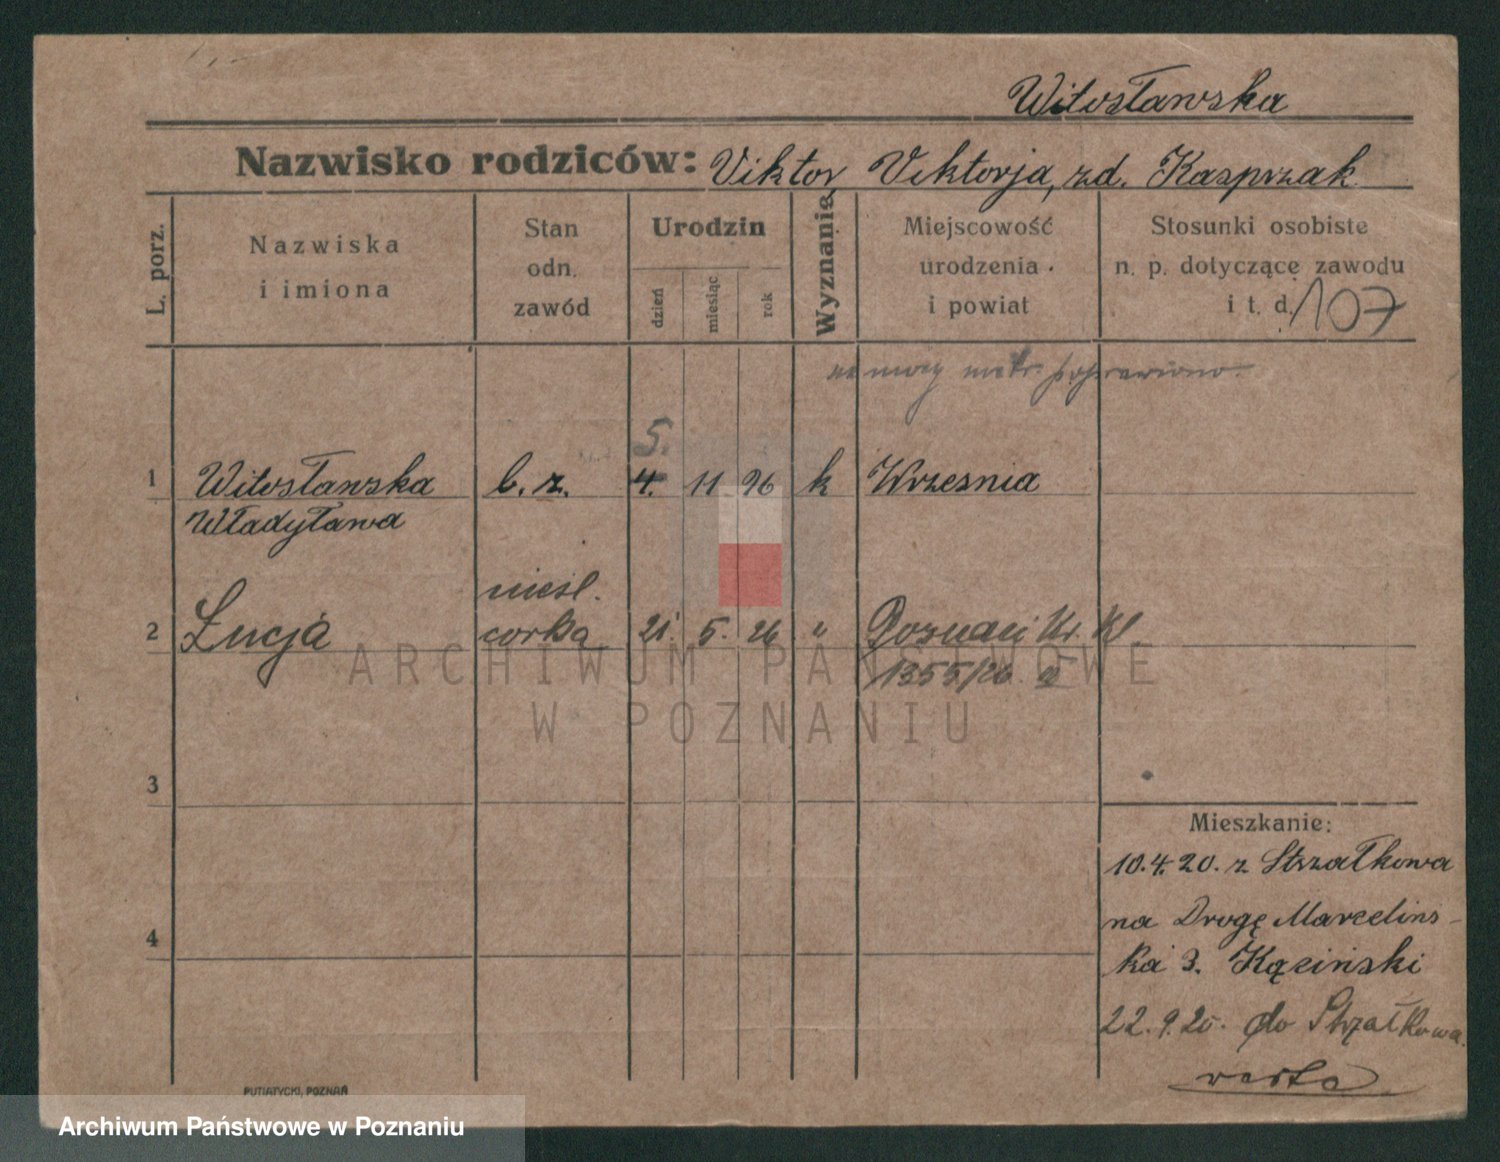 Witosławska
Nazwisko rodziców: Viktor, Viktorja, zd. Kasprzak
L. porz.
Nazwiska
i imiona
Stan
odn.
zawód
Urodzin
dzień
miesiąc
rok
Wyznanie
Miejscowość
urodzenia
i powiat
Stosunki osobiste
n. p. dotyczące zawodu
i t. d. 107
na mocy metr. poprawiono
5.
1 Witosławska b. z. 4. 11 96 k Wrzesnia
Władyława
nieśl.
2 Łucja corka 21. 5. 26 " Poznań Ur. Kl.
1355/26
ARCHIWUM PAŃSTWOWE
W POZNANIU
3
Mieszkanie:
10.4.20. z Strzałkowa
na Drogę Marcelins-
ka 3. Kąciński
4
22.9.20. do Strzałkowa.
verte
PUTIATYCKI, POZNAŃ
Archiwum Państwowe w Poznaniu